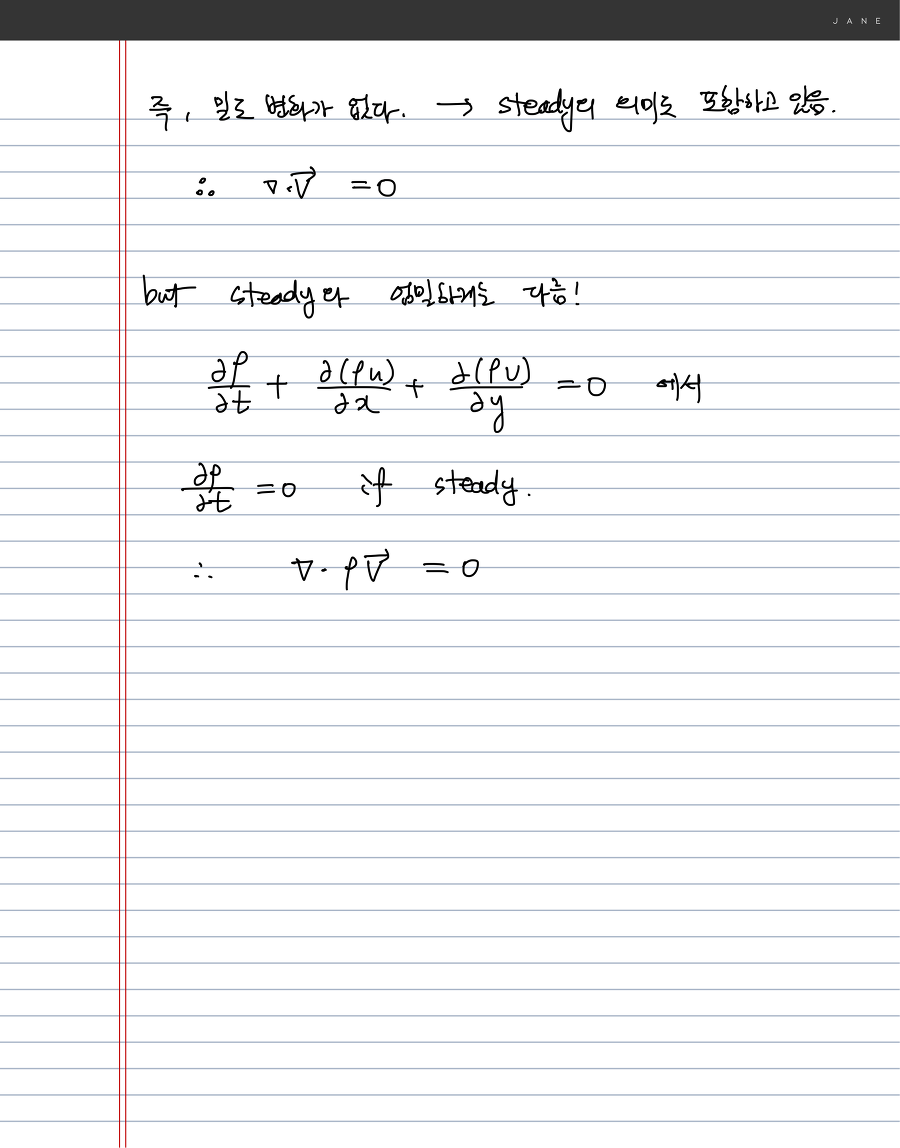 JANE
즉, 밀도 변화가 없다. → steady의 의미도 포함하고 있음.
∴ ∇·V⃗ = 0
but steady와 엄밀하게는 다름!
∂ρ/∂t + ∂(ρu)/∂x + ∂(ρv)/∂y = 0 에서
∂ρ/∂t = 0 if steady.
∴ ∇·ρV⃗ = 0